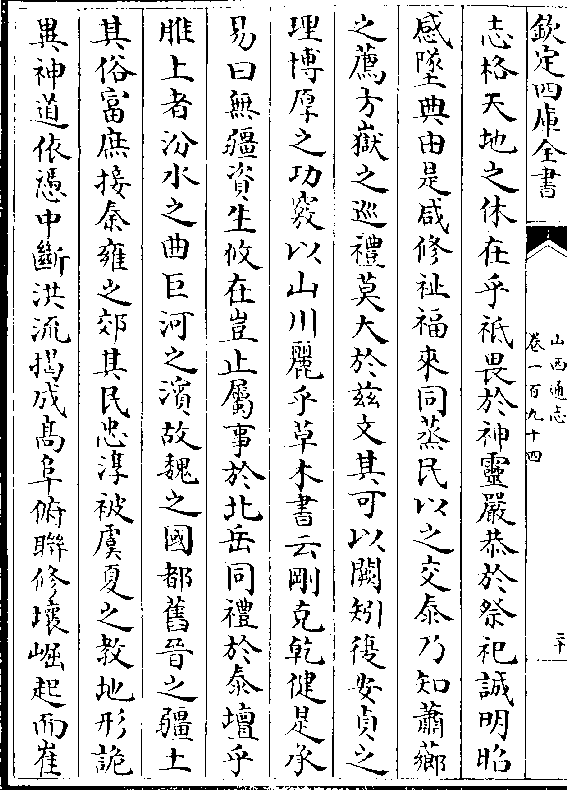 欽定四庫全書
山西通志
卷一百九十四
二十
志格天地之休在乎祗畏於神靈嚴恭於祭祀誠明昭
感墜典由是咸修祉福來同蒸民以之交泰乃知蕭薌
之薦方嶽之巡禮莫大於兹文其可以闕矧復安貞之
理博厚之功竅以山川麗乎草木書云剛克乾健是承
易曰無疆資生攸在豈止屬事於北岳同禮於泰壇乎
脽上者汾水之曲巨河之濱故魏之國都舊晉之疆土
其俗富庶接秦雍之郊其民忠淳被虞夏之教地形詭
異神道依憑中斷洪流揭成髙阜俯聨修壤崛起而崔